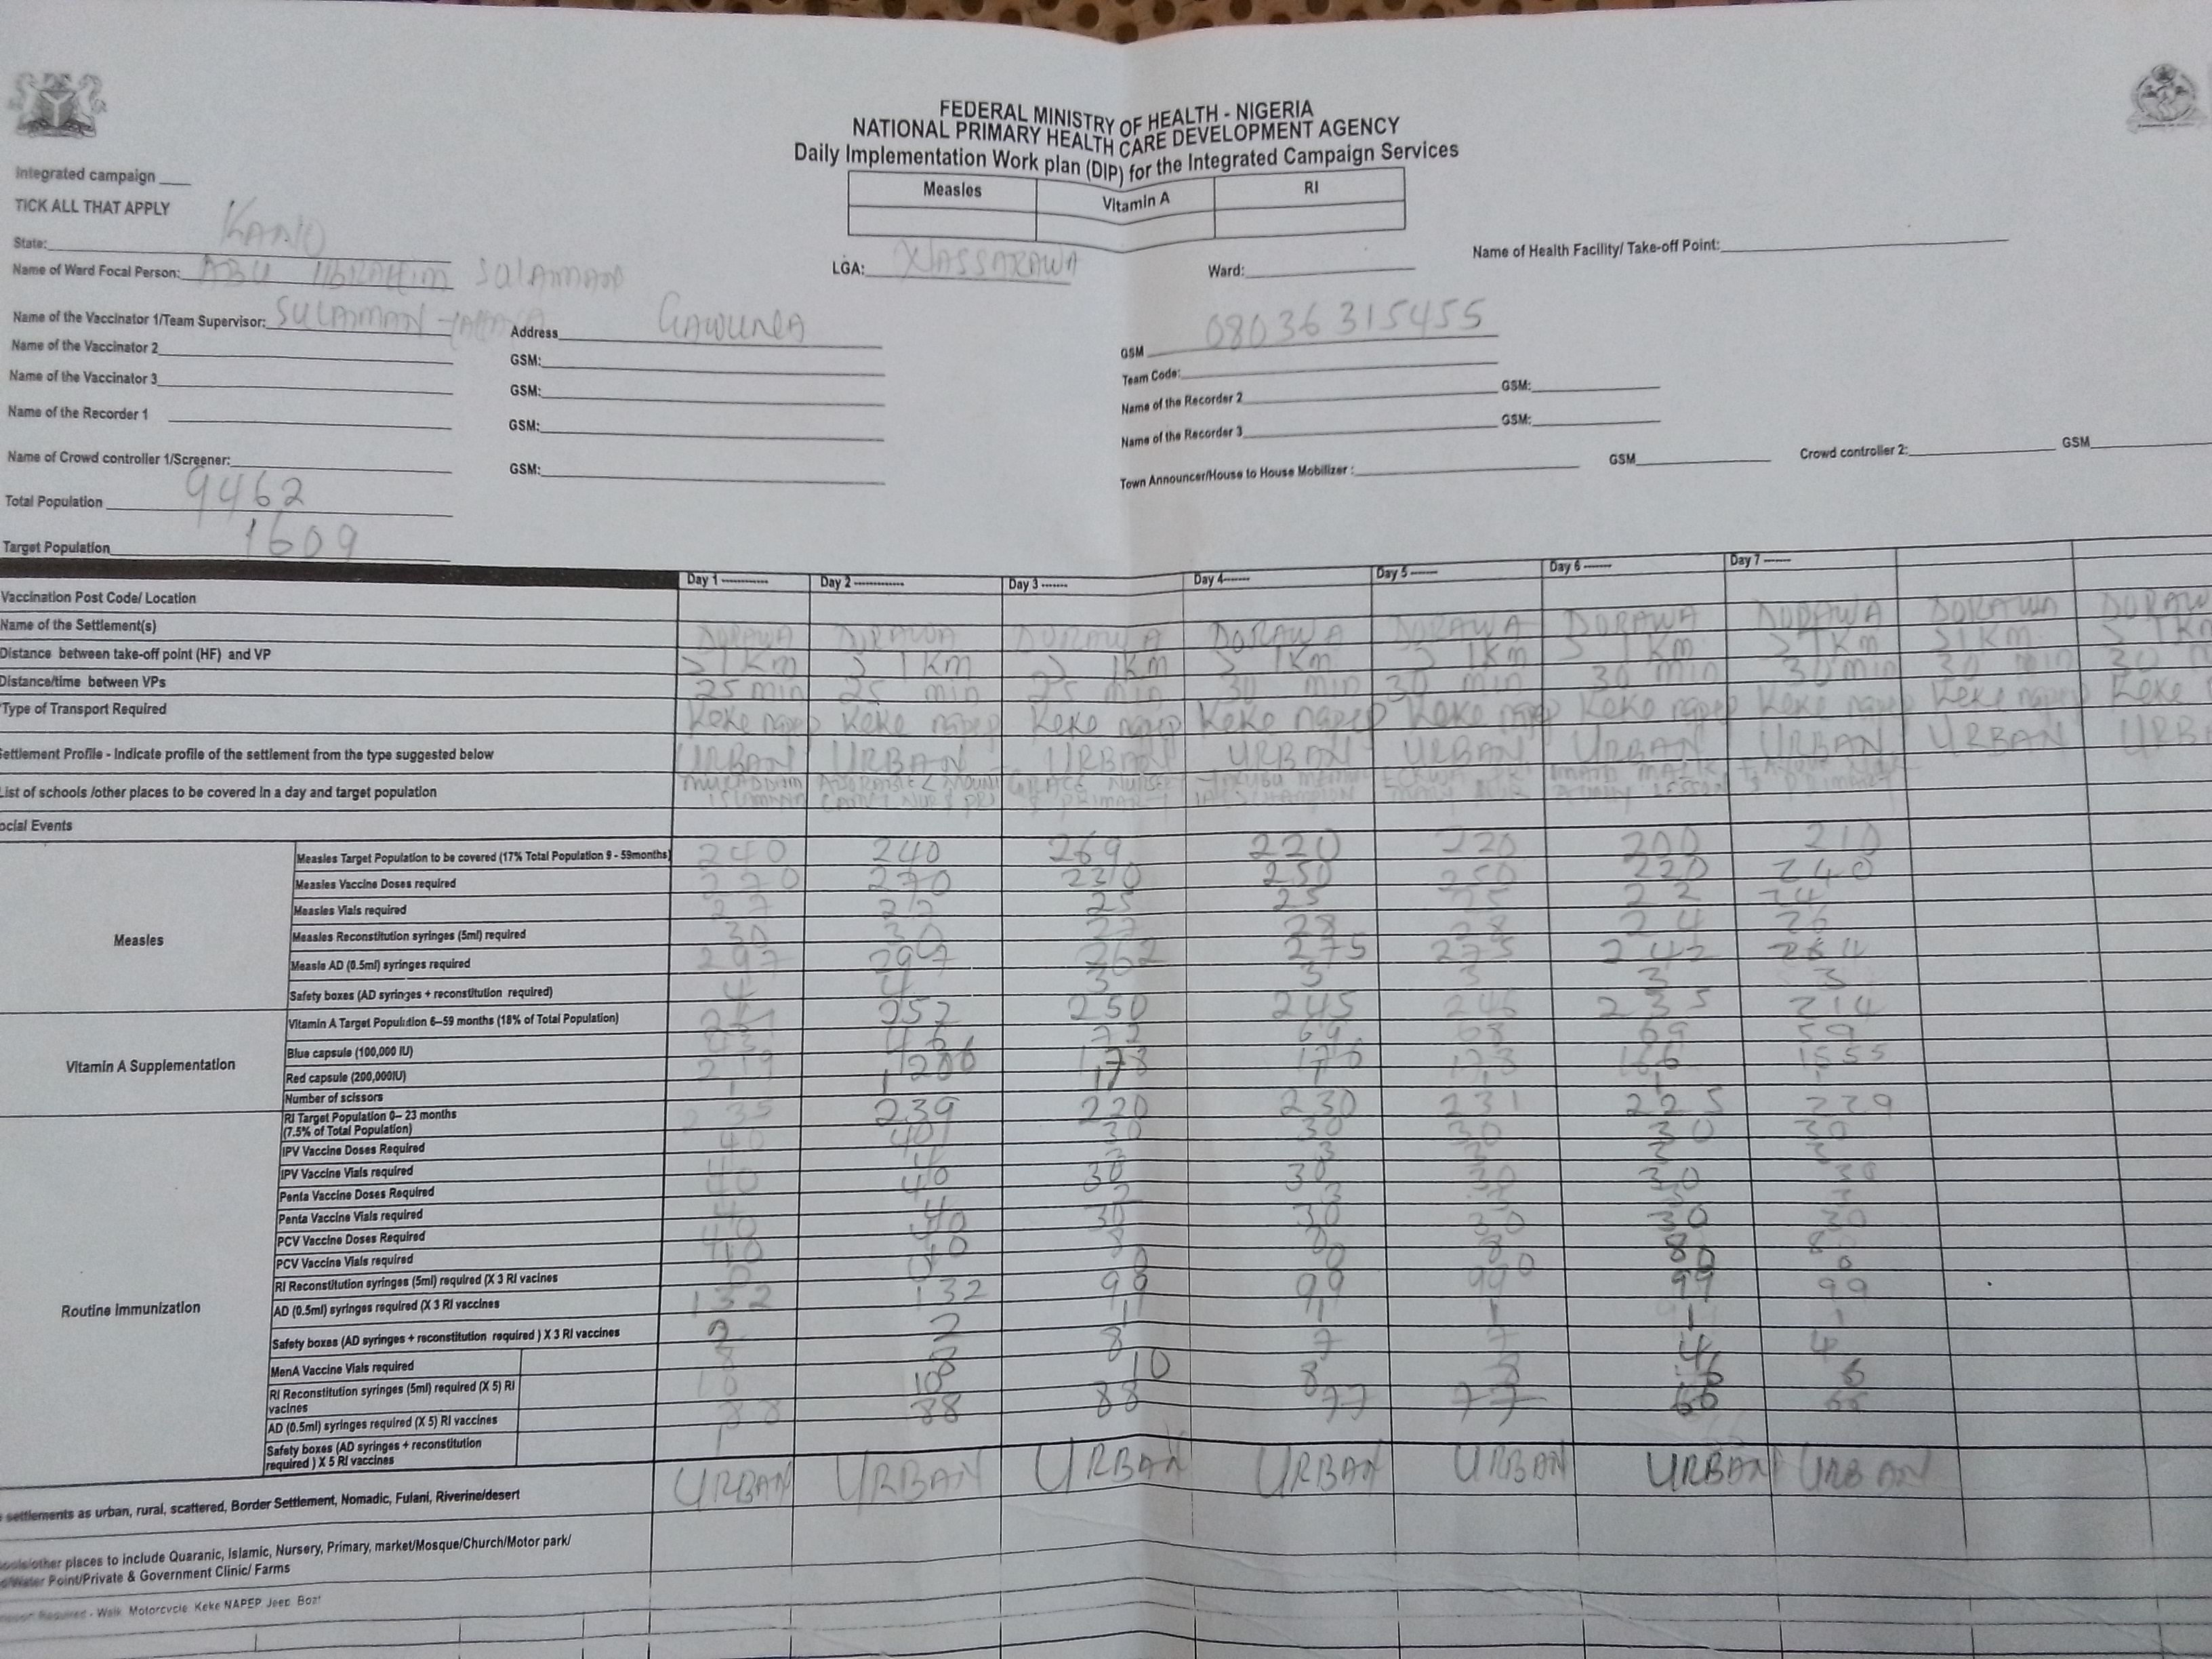 FEDERAL MINISTRY OF HEALTH - NIGERIA
NATIONAL PRIMARY HEALTH CARE DEVELOPMENT AGENCY
Daily Implementation Work plan (DIP) for the Integrated Campaign Services
Integrated campaign
TICK ALL THAT APPLY
Measles Vitamin A RI
State: KANO
LGA: NASSARAWA
Ward:
Name of Health Facility/ Take-off Point:
Name of Ward Focal Person: ABU IBRAHIM SULAIMAN
Name of the Vaccinator 1/Team Supervisor: SULAIMAN
Address GAWUNA
GSM 08036315455
Name of the Vaccinator 2 GSM: Team Code:
Name of the Vaccinator 3 GSM: Name of the Recorder 2 GSM:
Name of the Recorder 1 GSM: Name of the Recorder 3 GSM:
Name of Crowd controller 1/Screener: GSM: Town Announcer/House to House Mobilizer : GSM Crowd controller 2: GSM
Total Population 9462
Target Population 1609
Day 1 Day 2 Day 3 Day 4 Day 5 Day 6 Day 7
Vaccination Post Code/ Location
Name of the Settlement(s) DORAWA DORAWA DORAWA DORAWA DORAWA DORAWA DORAWA DORAWA
Distance between take-off point (HF) and VP > 1Km > 1Km > 1Km > 1Km > 1Km > 1Km > 1Km > 1Km
Distance/time between VPs 25 min 25 min 25 min 30 min 30 min 30 min 30 min 30 min
Type of Transport Required Keke napep Keke napep Keke napep Keke napep Keke napep Keke napep Keke napep Keke napep
ettlement Profile - Indicate profile of the settlement from the type suggested below URBAN URBAN URBAN URBAN URBAN URBAN URBAN URBAN
List of schools /other places to be covered in a day and target population
ocial Events
Measles
Measles Target Population to be covered (17% Total Population 9 - 59months) 240 240 269 220 220 200 210
Measles Vaccine Doses required 270 270 230 250 250 220 240
Measles Vials required 27 27 25 25 25 22 24
Measles Reconstitution syringes (5ml) required 30 30 27 28 28 24 26
Measle AD (0.5ml) syringes required 297 297 262 275 275 242 264
Safety boxes (AD syringes + reconstitution required) 4 4 3 3 3 3 3
Vitamin A Supplementation
Vitamin A Target Population 6–59 months (18% of Total Population) 252 250 245 246 235 214
Blue capsule (100,000 IU) 72 69 68 69 59
Red capsule (200,000IU) 219 178 176 173 166
Number of scissors
RI Target Population 0– 23 months
(7.5% of Total Population) 235 239 220 230 231 225 229
Routine Immunization
IPV Vaccine Doses Required 40 40 30 30 30 30 30
IPV Vaccine Vials required 4 3 3 3 3 3
Penta Vaccine Doses Required 40 40 30 30 30 30 30
Penta Vaccine Vials required 4 4 3 3
PCV Vaccine Doses Required 40 40 30 30 30 30 30
PCV Vaccine Vials required 10 10 8 8 8 8 8
RI Reconstitution syringes (5ml) required (X 3 RI vacines 0 0 0 0 0 0 0
AD (0.5ml) syringes required (X 3 RI vaccines 132 132 99 99 99 99 99
Safety boxes (AD syringes + reconstitution required ) X 3 RI vaccines 2 2 1 1 1 1 1
MenA Vaccine Vials required 8 8 8 7 7 4 4
RI Reconstitution syringes (5ml) required (X 5) RI
vacines 10 10 10 8 8 6 6
AD (0.5ml) syringes required (X 5) RI vaccines 88 88 88 77 77 66 66
Safety boxes (AD syringes + reconstitution
required ) X 5 RI vaccines 1
settlements as urban, rural, scattered, Border Settlement, Nomadic, Fulani, Riverine/desert URBAN URBAN URBAN URBAN URBAN URBAN URBAN
other places to include Quaranic, Islamic, Nursery, Primary, market/Mosque/Church/Motor park/
Water Point/Private & Government Clinic/ Farms
Required - Walk Motorcycle Keke NAPEP Jeep Boat